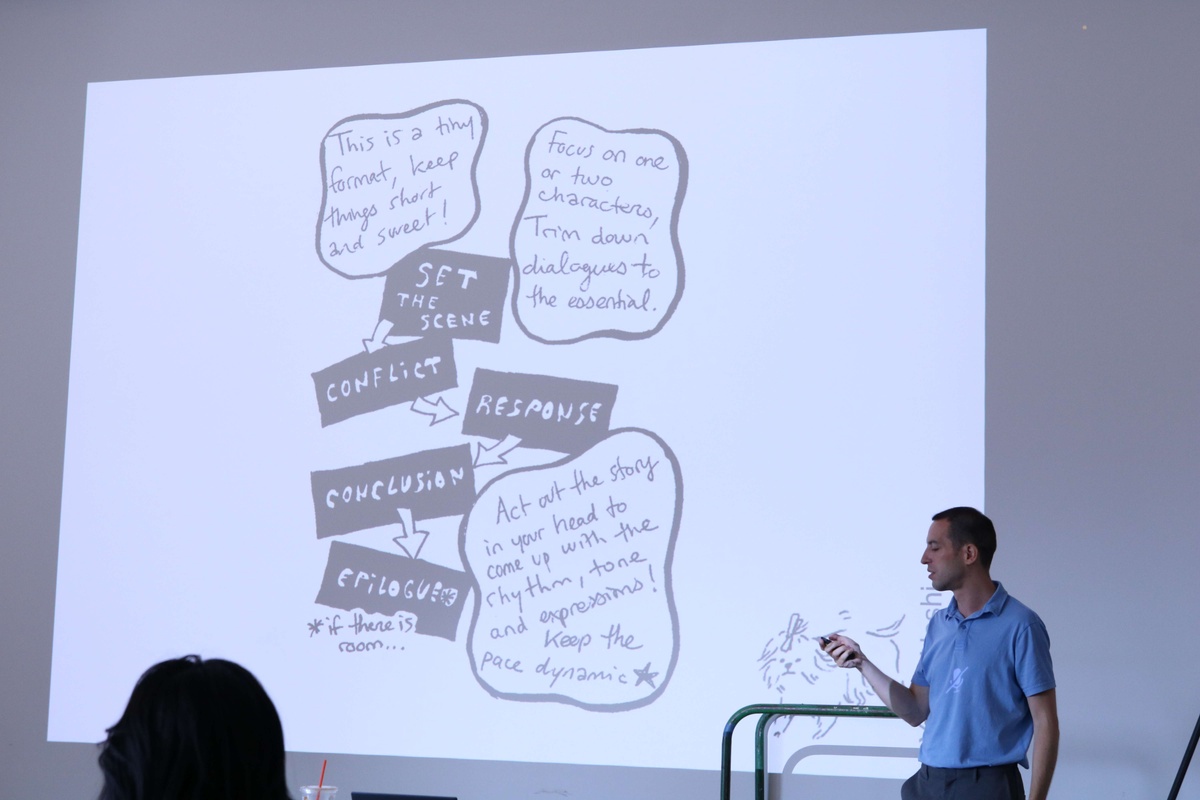 This is a tiny
format, keep
things short
and sweet!
Focus on one
or two
characters,
Trim down
dialogues to
the essential.
SET
THE
SCENE
CONFLICT
RESPONSE
CONCLUSION
EPILOGUE*
*if there is
room...
Act out the story
in your head to
come up with the
rhythm, tone
and expressions!
Keep the
pace dynamic